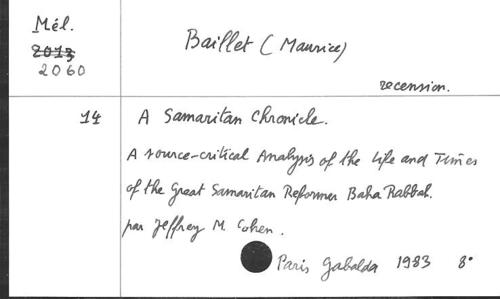 Mél.
2013
2060
Baillet (Maurice)
recension.
14
A Samaritan Chronicle.
A source-critical Analysis of the Life and Times
of the Great Samaritan Reformer Baba Rabbah.
par Jeffrey M. Cohen.
Paris Gabalda 1983 8°